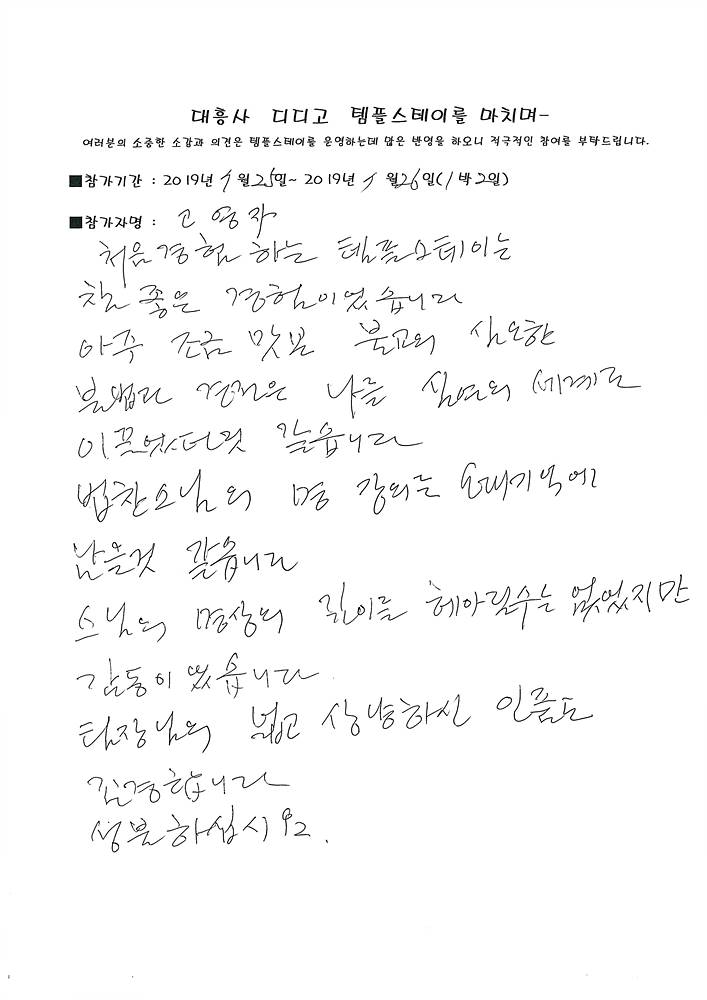 대흥사 디디고 템플스테이를 마치며-
여러분의 소중한 소감과 의견은 템플스테이를 운영하는데 많은 반영을 하오니 적극적인 참여를 부탁드립니다.
■참가기간 : 2019년 1월 25일~ 2019년 1월 26일(1박2일)
■참가자명 : 고영자
처음경험 하는 템플스테이는
참 좋은 경험이었습니다
아주 조금 맛본 불교의 심오한
불법과 경전은 나를 심연의 세계로
이끄는 같읍니다
법찬스님의 명 강의는 오래기억에
남을것 같읍니다
스님의 명상의 깊이를 헤아릴수는 없었지만
감동이 있읍니다
팀장님의 밝고 상냥하신 인품도
존경합니다
성불하십시오.